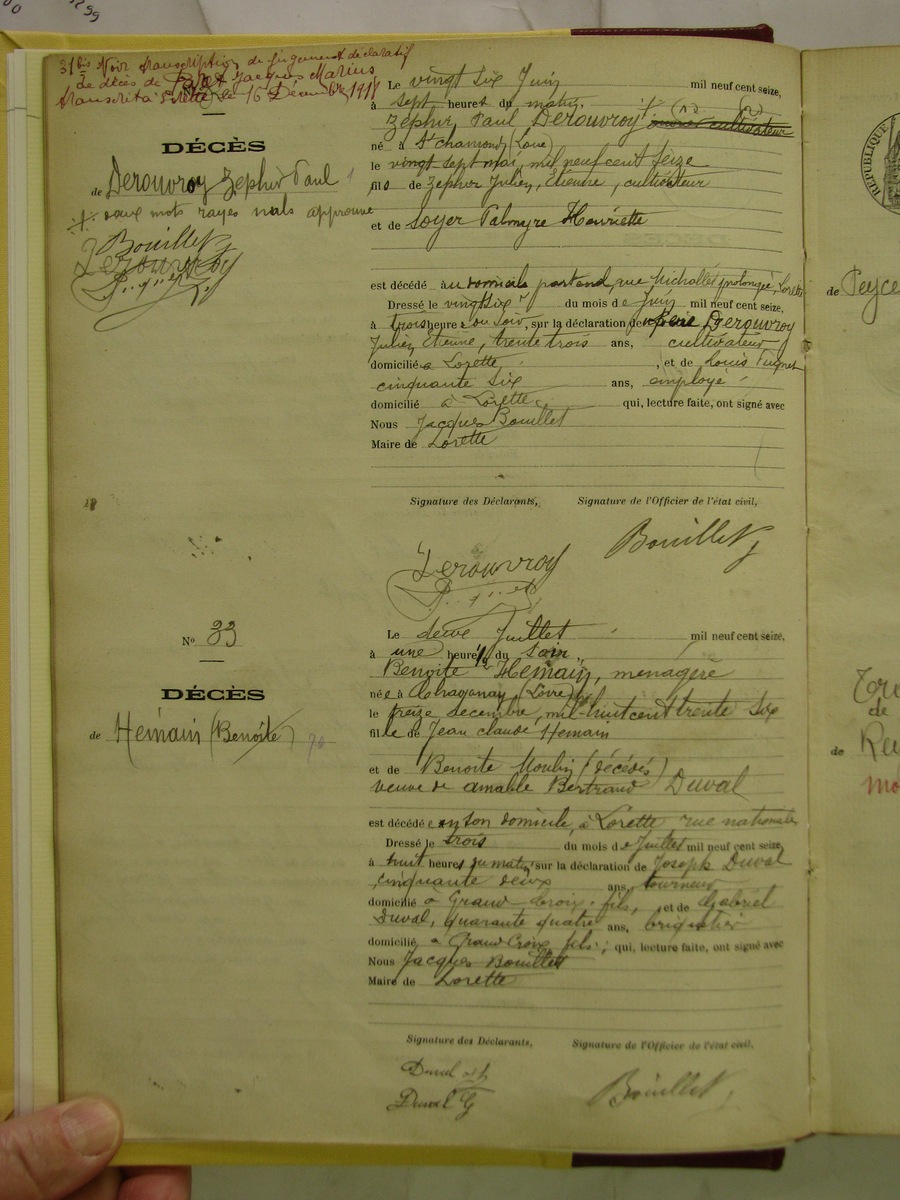 31 bis Voir transcription de jugement déclaratif
de décès de Jacques Marius
transcrit à Lorette le 16 Décembre 1918
DÉCÈS
de Derouvroy Zephir Paul
deux mots rayés nuls approuvé
Bouillet
Derouvroy
Le vingt six Juin mil neuf cent seize,
à sept heures du matin,
Zéphir Paul Derouvroy cultivateur
né à St chamond (Loire)
le vingt sept mai, mil neuf cent seize
fils de Zephir Julien, Etienne, cultivateur
et de Soyer Palmyre Henriette
est décédé au domicile paternel, rue Michallet prolongée, Lorette
Dressé le vingt six du mois de Juin mil neuf cent seize,
à trois heures du soir, sur la déclaration de père Derouvroy
Julien Etienne, trente trois ans, cultivateur
domicilié à Lorette, et de Louis
cinquante six ans, employé
domicilié à Lorette qui, lecture faite, ont signé avec
Nous Jacques Bouillet
Maire de Lorette
Signature des Déclarants, Signature de l'Officier de l'état civil,
Bouillet
Derouvroy
No 33
DÉCÈS
de Hemain (Benoîte)
Le deux Juillet mil neuf cent seize,
à une heure 1/2 du soir,
Benoîte Hemain, ménagère
née à Chagnon (Loire)
le treize décembre, mil huit cent trente six
fille de Jean claude Hemain
et de Benoîte Moulin (décédés)
veuve de amable Bertrand Duval
est décédée en son domicile, à Lorette rue nationale
Dressé le trois du mois de Juillet mil neuf cent seize,
à huit heures du matin, sur la déclaration de Joseph Duval
cinquante deux ans, tourneur
domicilié à Grand Croix, fils, et de Gabriel
Duval, quarante quatre ans,
domicilié à Grand Croix fils, qui, lecture faite, ont signé avec
Nous Jacques Bouillet
Maire de Lorette
Signature des Déclarants, Signature de l'Officier de l'état civil,
Duval
Duval G
Bouillet
RÉPUBLIQUE
de
de
de